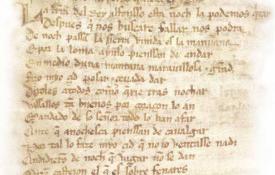 La tierra del Rey alfonsso esta noch la podemos quitar
Despues qui nos buscare fallar nos podra
De noch passan la sierra vinida es la mañana
E por la loma ayuso pienssan de andar
En medio duna montana maravillosa e grand
Fizo myo çid posar e çevada dar
Dixoles atodos commo querie trasnochar
Vassallos tan buenos por coraçon lo an
Mandado de so señor todo lo han a far
Ante que anochesca pienssan de cavalgar
Por tal lo faze myo çid que no lo ventasse nadi
Andidieron de noch que vagar no se dan
O dizen casteion el que es sobre fenares